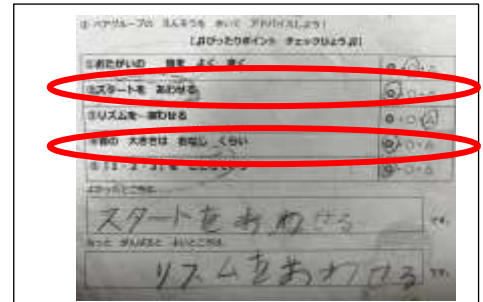 ② ペアグループの えんそうを きいて アドバイスしよう!
【♫ぴったりポイント チェックひょう♫】
①おたがいの 音を よく きく ◎・○・△
②スタートを あわせる ◎・○・△
③リズムを あわせる ◎・○・△
④音の 大きさは おなじ くらい ◎・○・△
◎・○・△
よかったところは
スタートをあわせる です。
もっと がんばると よいところは
リズムをあわせる です。